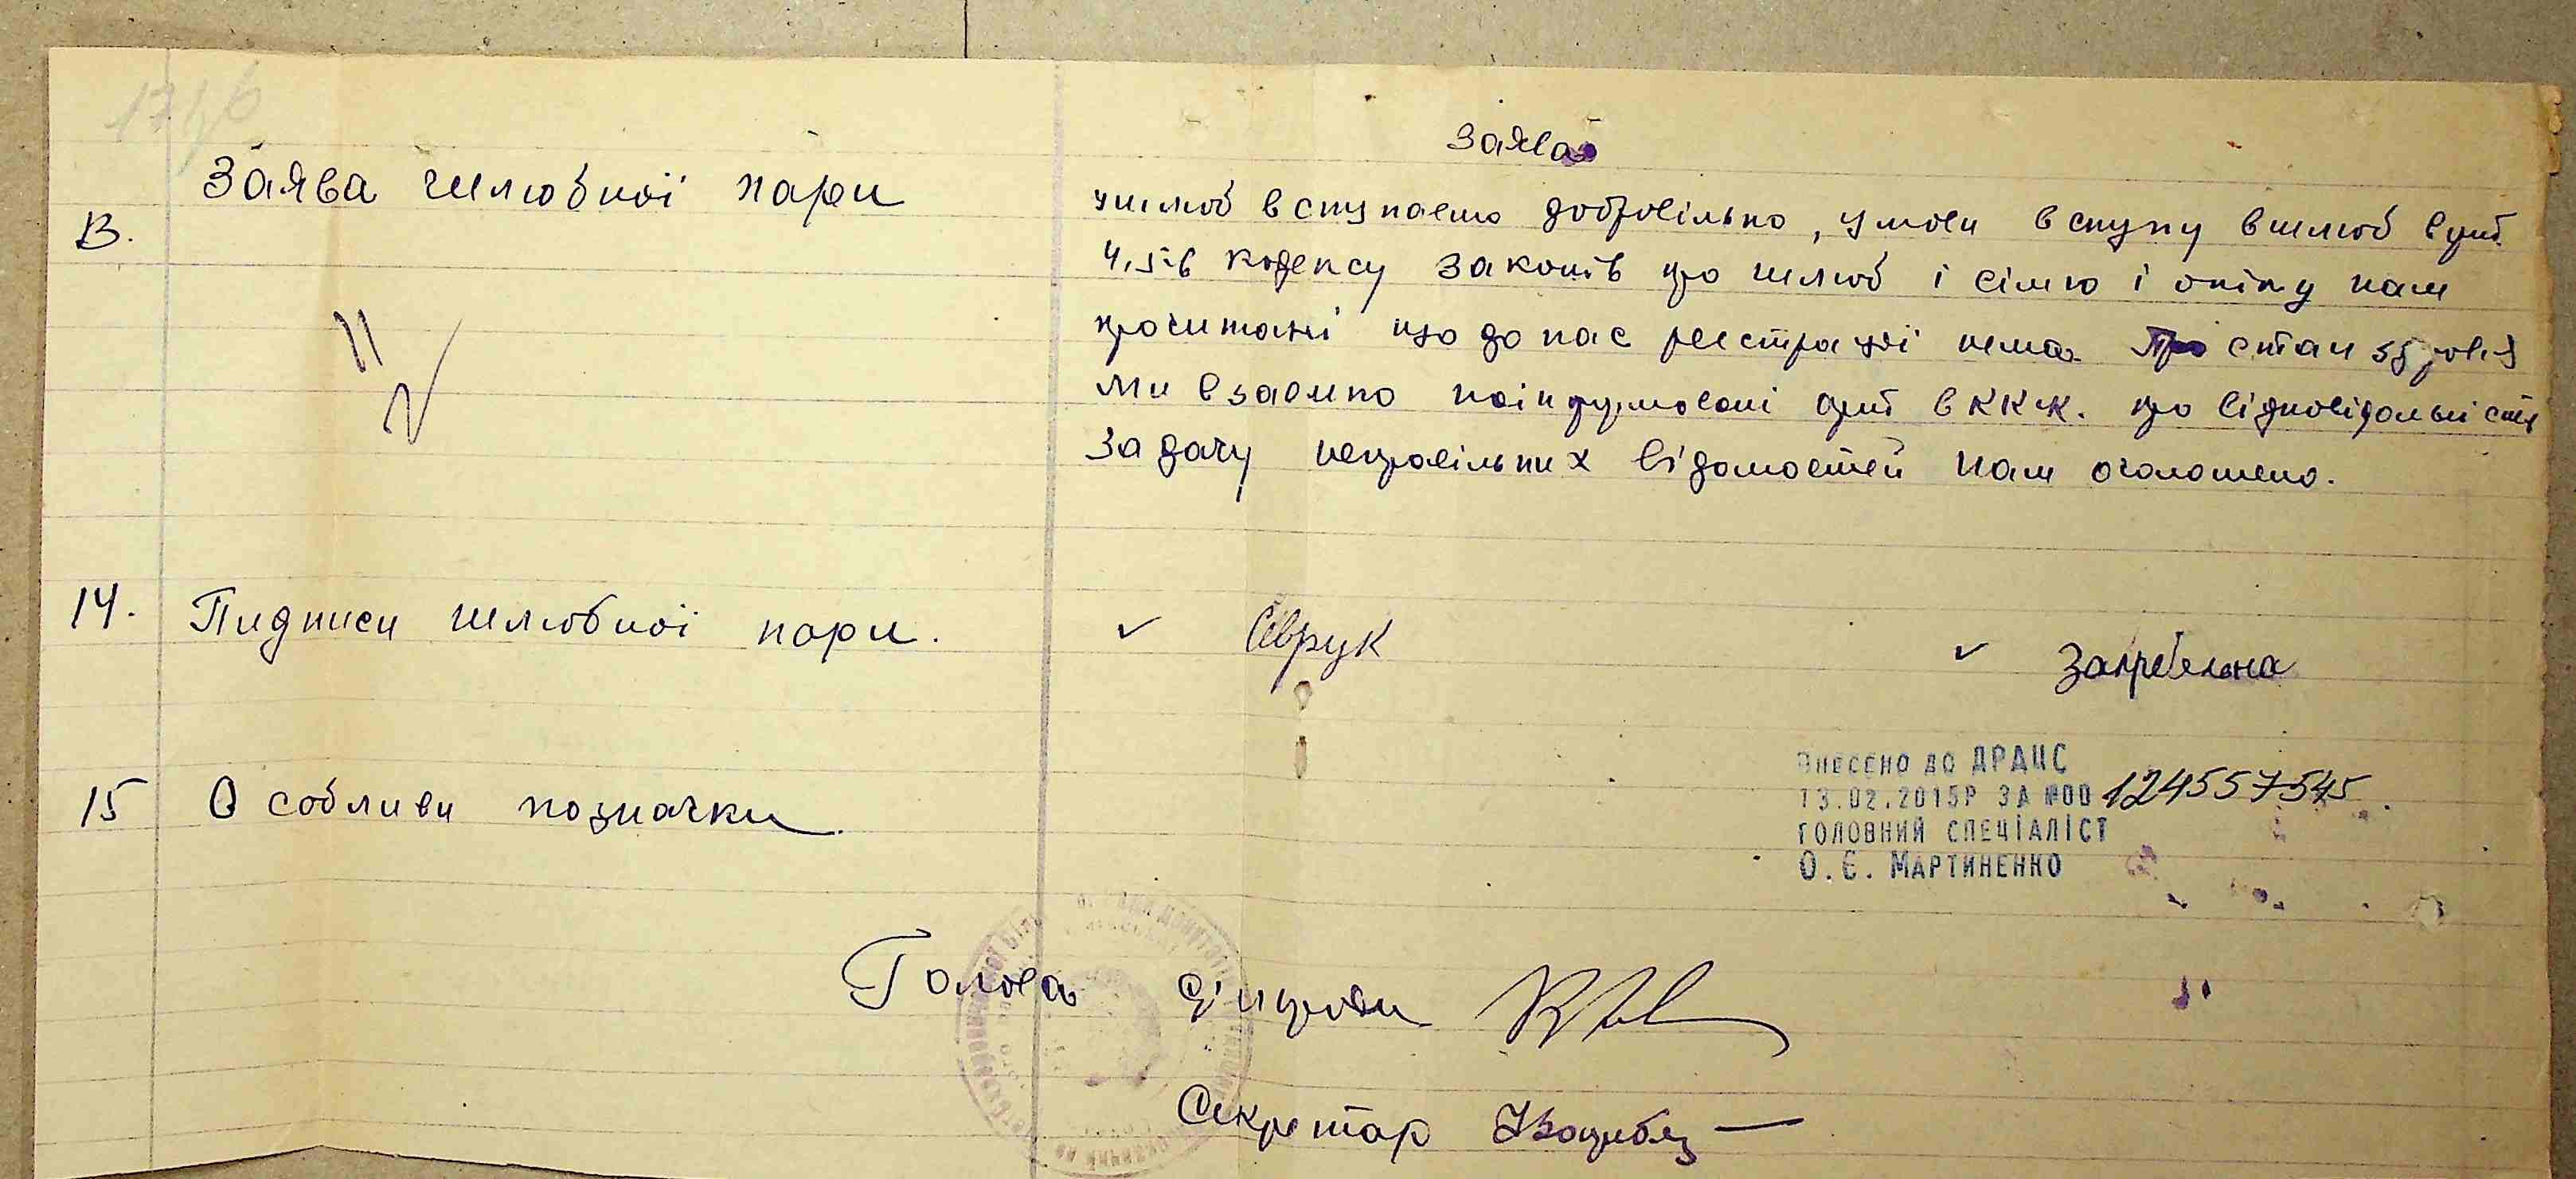 Заява
Заява шлюбної пари
В.
у шлюб вступаемо добровільно, умови вступу в шлюб
4,5-6 кодексу законів про шлюб і сімю і опіку нам
прочитані що до нас реєстрації нема Про стан здоровя
Ми взаемно поінформовані ККК. про відповідальність
За дачу неправільних відомостей нам оголошено.
14. Пидписи шлюбної пари. Сіврук Загребельна
15 Особливи позначки.
Внесено до ДРАЦС
13.02.2015р за №00 124557545
головний спеціаліст
О.Є. Мартиненко
Голова сільради
Секретар